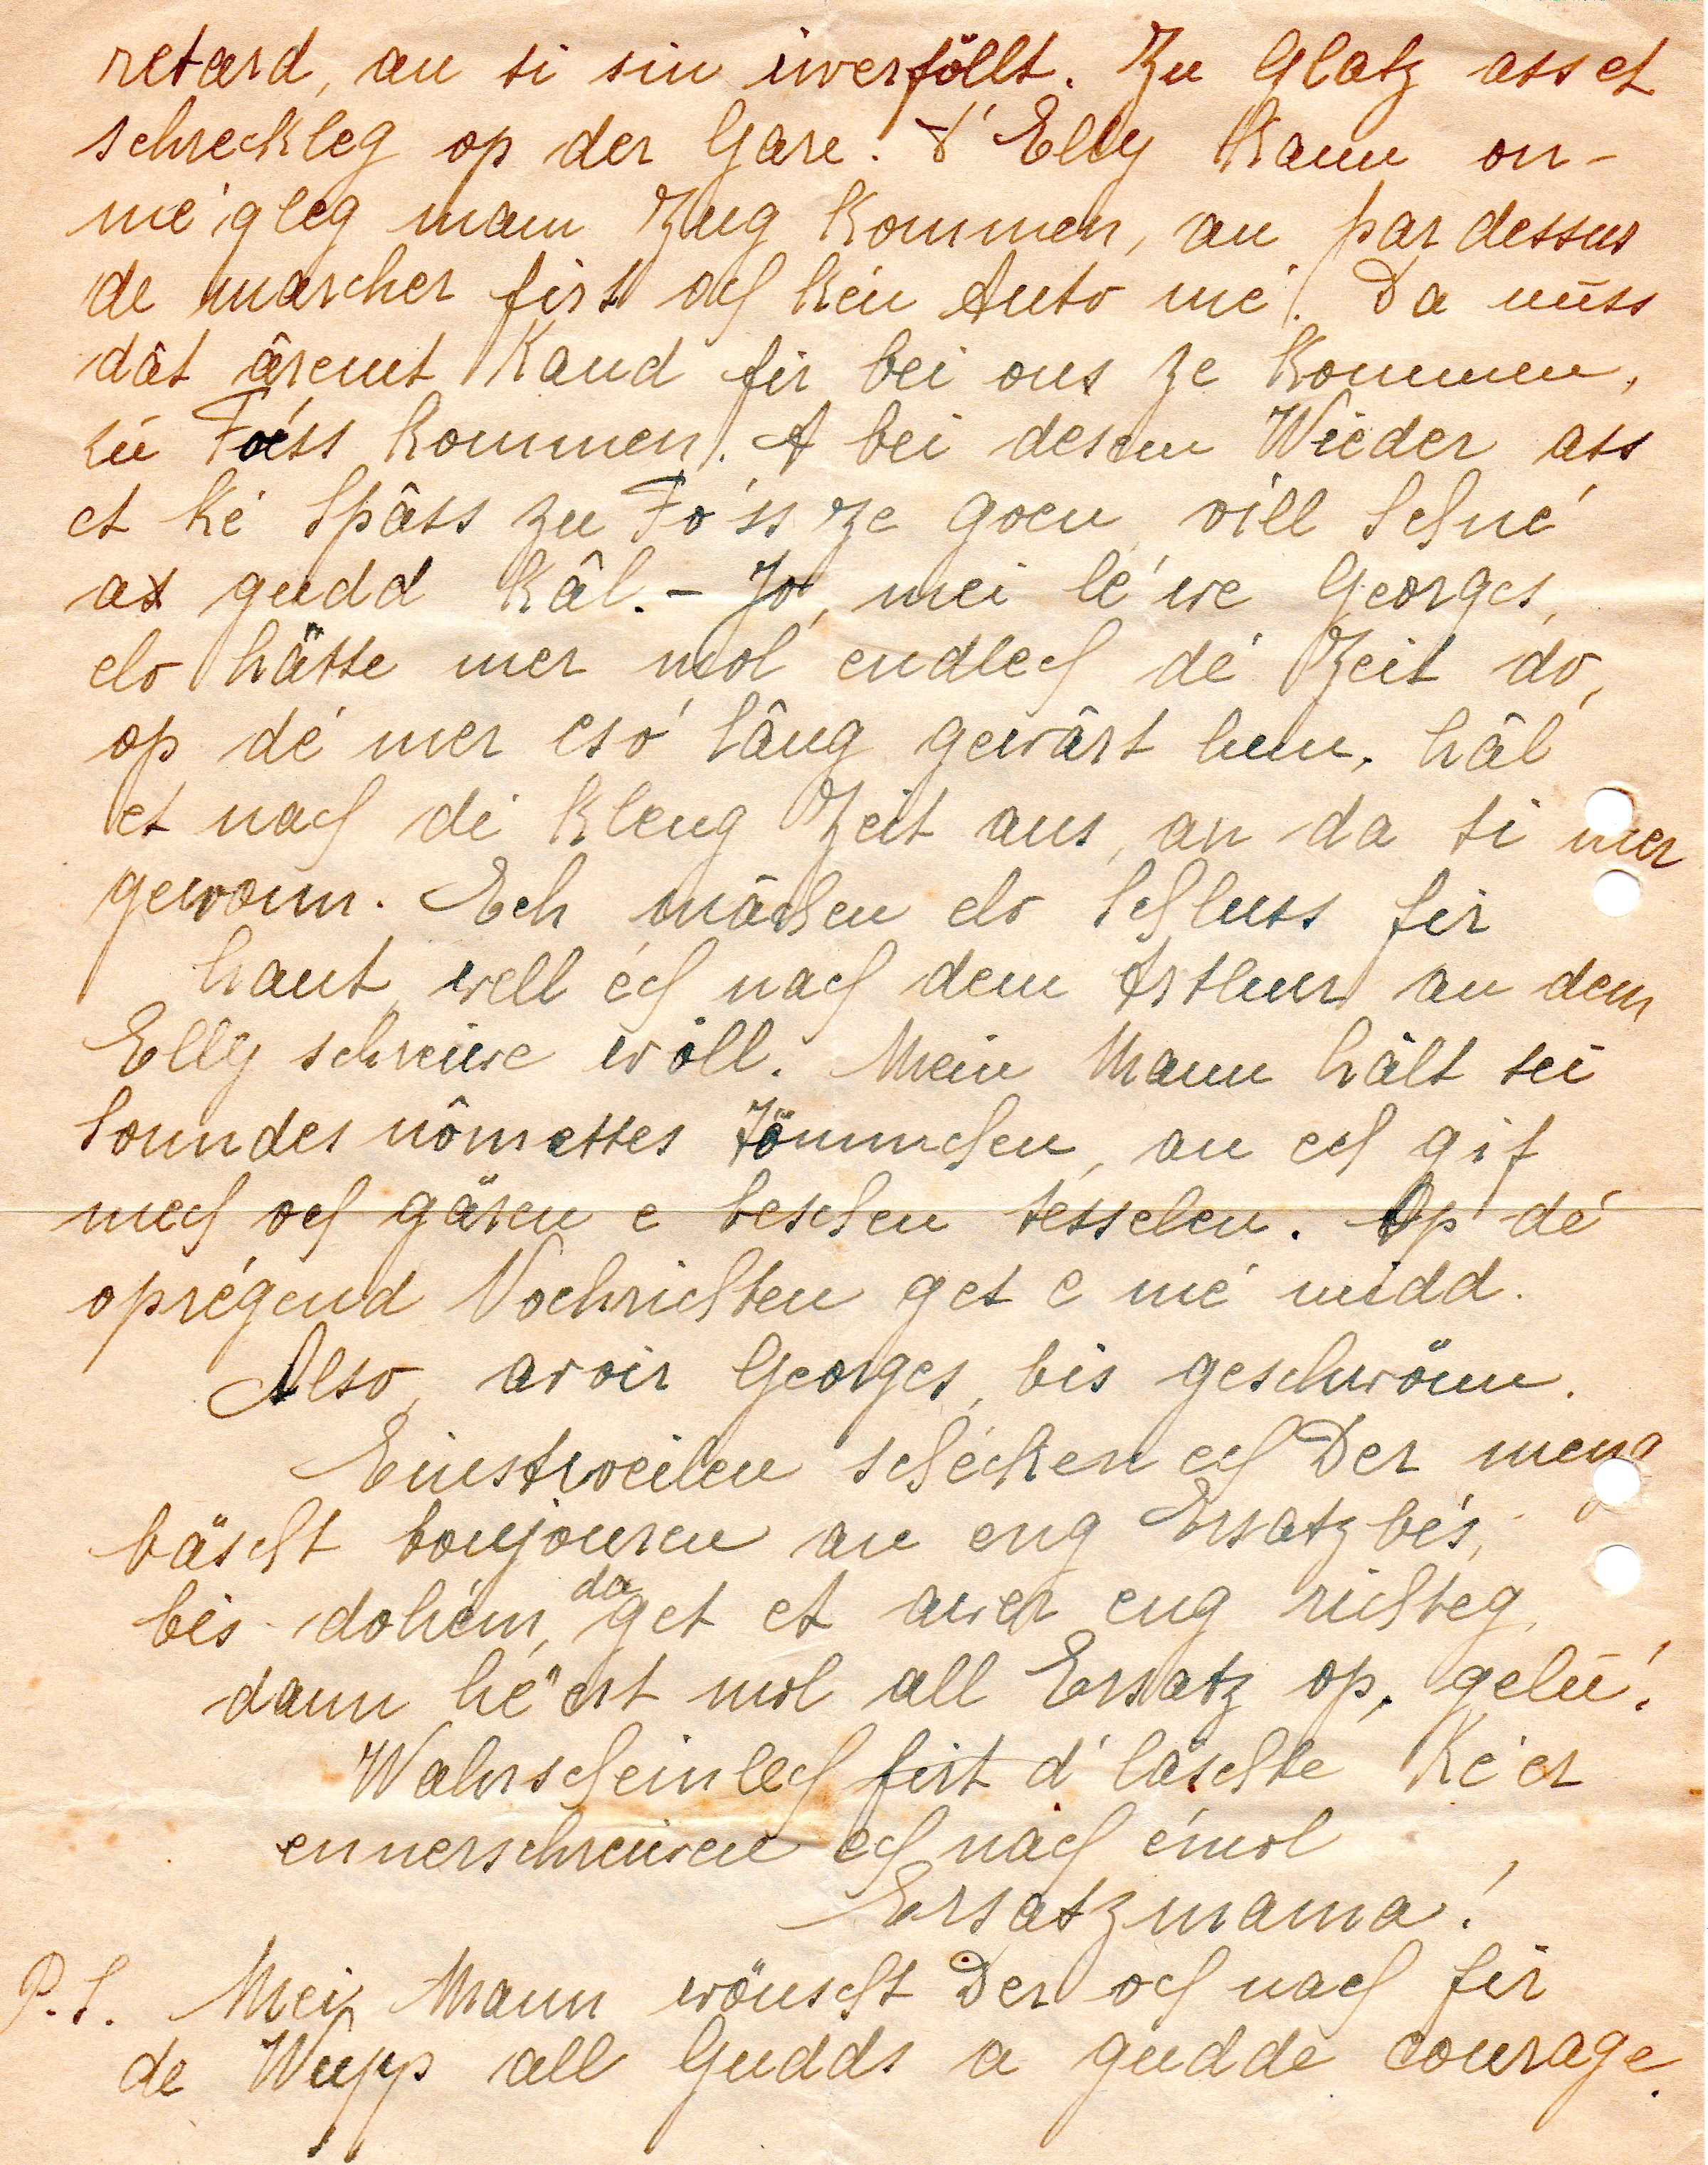 retard, an si sin iwerföllt. Zu Glatz ass et
schreckleg op der Gare. d'Elly kann on-
mé'gleg mam Zug kommen, an par dessus
de marcher firt och kén Auto mé! Da muss
dât âremt Kand fir bei ons ze kommen,
zu Fo'ss kommen. A bei desem Wieder ass
et ké Spâss zu Fo'ss ze goen, vill Schné
at gudd kâl. - Jo, mei lé'we Georges,
elo hätte mer mol endlech dé Zeit do,
op dé mer eso' lâng gewârt hun. Hâl
et nach di kleng Zeit aus, an da si mer
gewonn. Ech mâchen elo Schluss fir
haut, well éch nach dem Arthur an dem
Elly schreiwe wöll. Mein Mann hält sei
Sonndes nômettes Jömmchen, an ech gif
mech och gären e beschen tësselen. Op dé
oprégend Nochrichten get e mé midd.
Also, avoir Georges, bis geschwönn.
Einstweilen schécken ech Der meng
bäscht bonjouren an eng Ersatzbés,
bis dohém, da get et awer eng richteg,
dann hé'ert mol all Ersatz op, gelu!
Wahrscheinlech firt d'läschte Ké'er
ennerschreiwen ech nach émol
Ersatzmama!
P.S. Mei Mann wönscht Der och nach fir
de Wupp all Gudds a gudde courage.